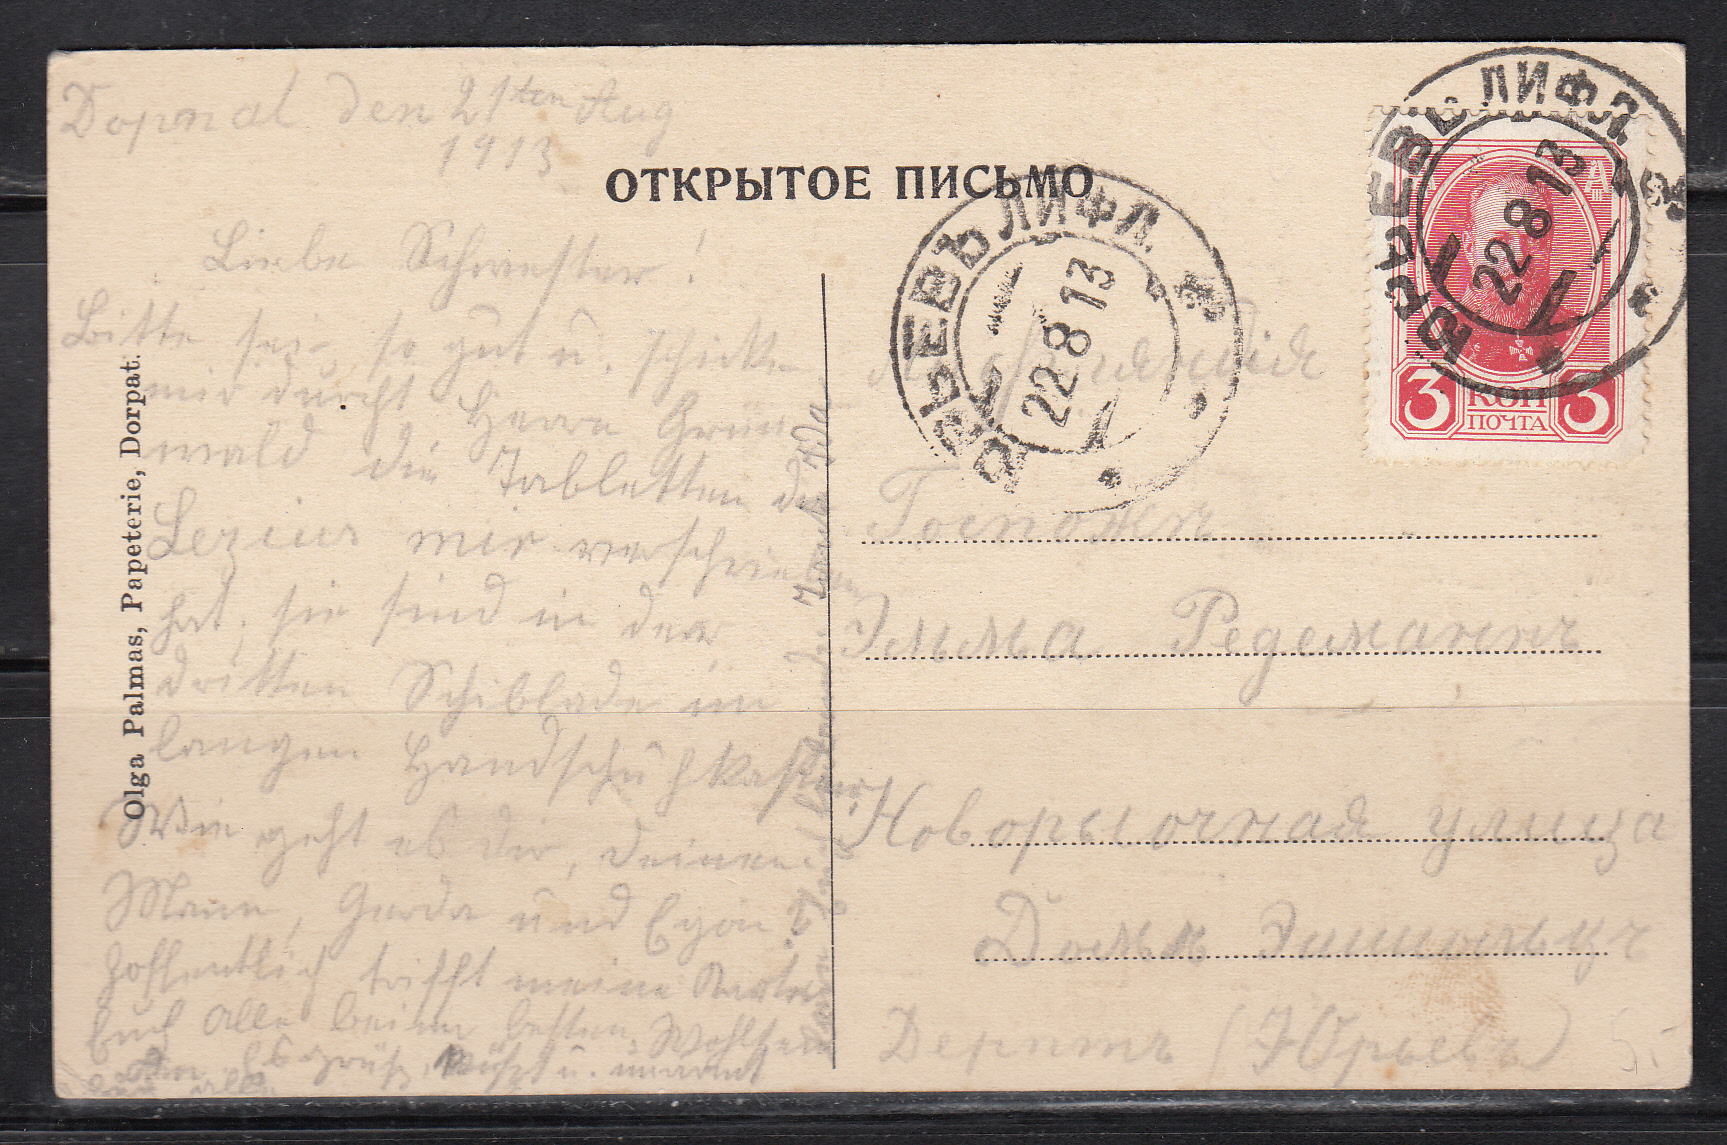 den 21ten Aug
1913
ОТКРЫТОЕ ПИСЬМО
Liebe Schwester!
Bitte sei so gut u. schicke
mir durch Herrn Grün
wald die Tabletten die
Lezius mir verschrieben
hat, sie sind in der
dritten Schiblade im
langen Handschuhkasten
Wie geht es dir, deinem
Mann, Gerda und Egon?
Hoffentlich trifft meine Karte
Euch alle beim besten Wohlsein
Es grüßt, küßt u. umarmt
Olga Palmas, Papeterie, Dorpat.
ЮРЬЕВЪ ЛИФЛ.
22 8 13
ЮРЬЕВЪ ЛИФЛ.
22 8 13
3 КОП 3
ПОЧТА
Лифляндія
Госпожѣ
Эльма Редеманнъ
Новорыночная улица
Домъ
Дерптъ (Юрьевъ)
5.-